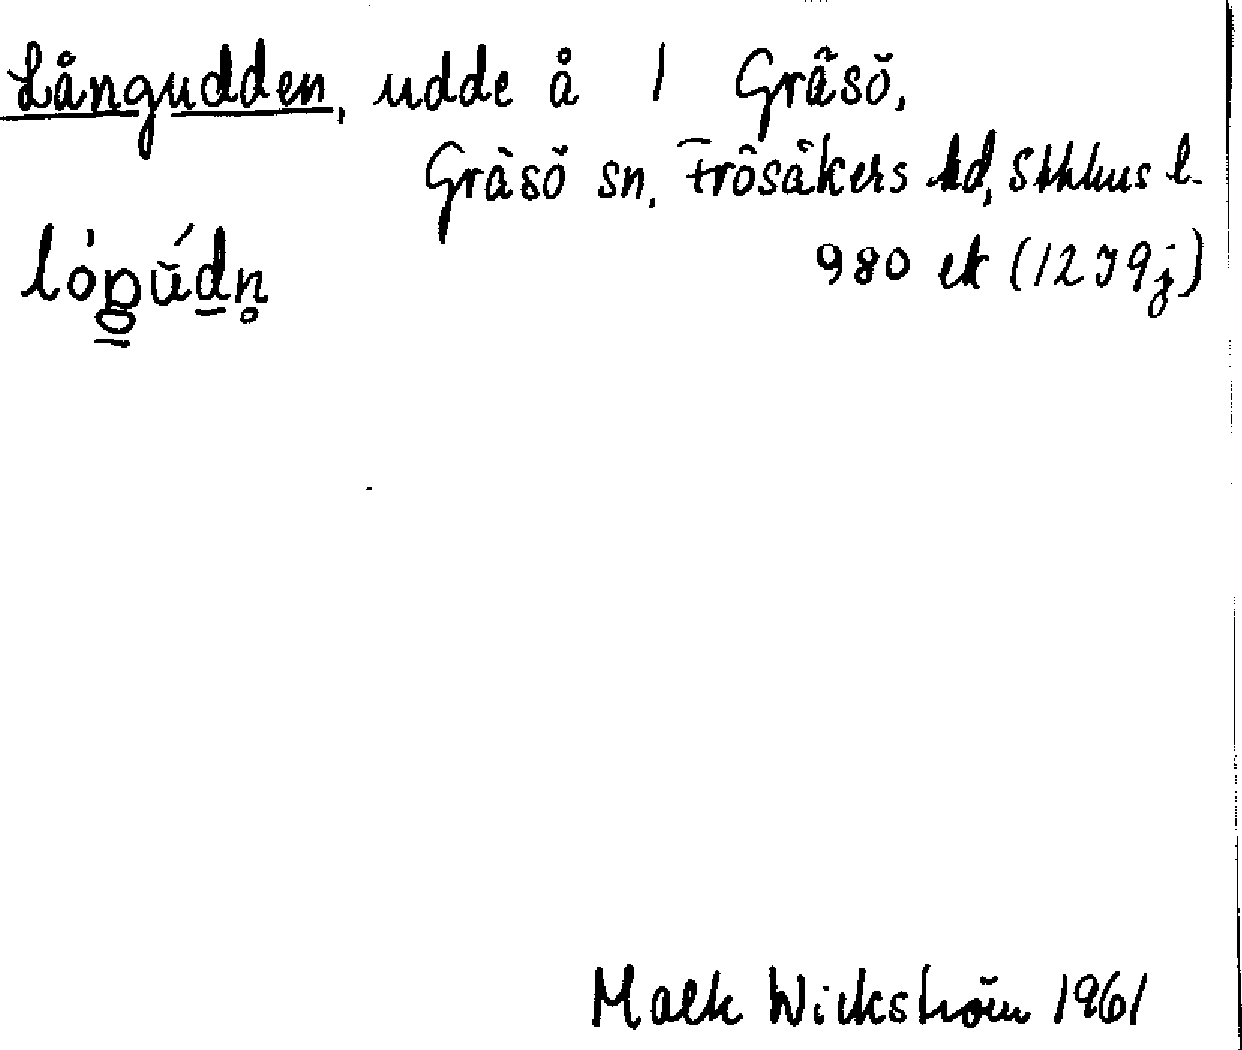 Långudden, udde å 1 Gräsö,
Gräsö sn, Frösåkers hd, Sthlms l.
980 ek (1279j)
Maek Wickström 1961